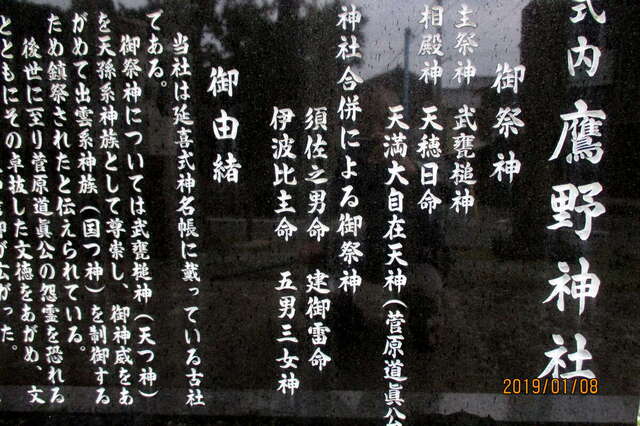 式内鷹野神社
御祭神
主祭神 武甕槌神
相殿神 天穂日命
天満大自在天神(菅原道眞公
神社合併による御祭神
須佐之男命 建御雷命
伊波比主命 五男三女神
御由緒
当社は延喜式神名帳に戴っている古社
である。
御祭神については武甕槌神(天つ神)
を天孫系神族として尊崇し、御神威をあ
がめて出雲系神族(国つ神)を制御する
ため鎮祭されたと伝えられている。
後世に至り菅原道眞公の怨霊を恐れる
とともにその卓抜した文徳をあがめ、文
が広がった。
2019/01/08